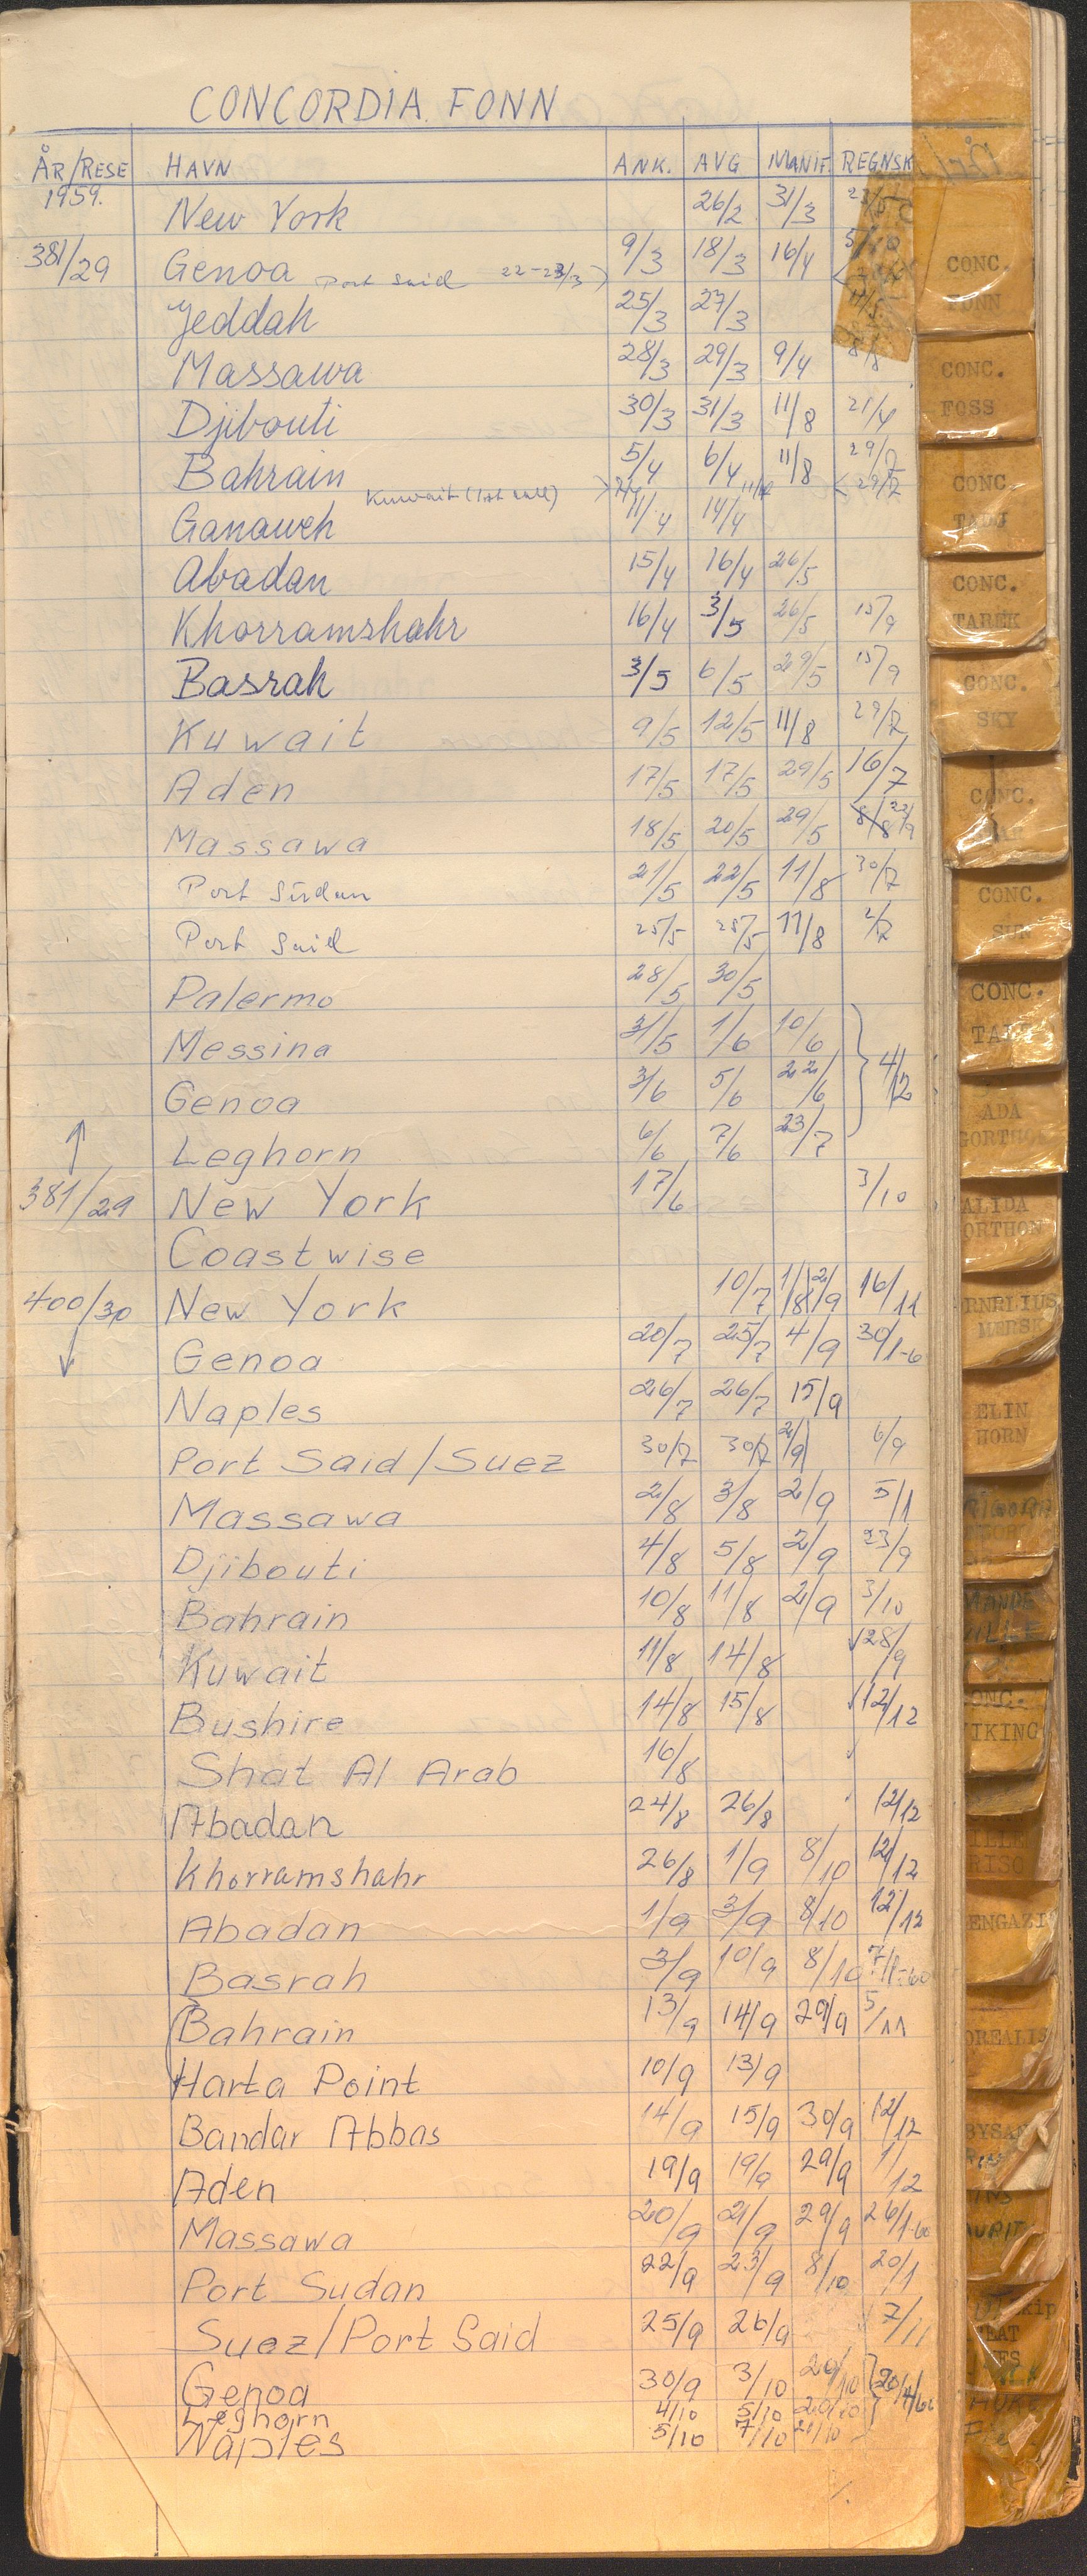 CONCORDIA FONN
ÅR/RESE HAVN ANK. AVG MANIF. REGNSK
1959.
New York 26/2 31/3
381/29 Genoa 9/3 18/3 16/4
Port Said 22-23/3
Jeddah 25/3 27/3
Massawa 28/3 29/3 9/4 8/8
Djibouti 30/3 31/3 11/8 21/4
Bahrain 5/4 6/4 11/8 29/7
Kuwait (1st call) 29/7
Ganaweh 11/4 14/4
Abadan 15/4 16/4 26/5
Khorramshahr 16/4 3/5 26/5 15/9
Basrah 3/5 6/5 29/5 15/9
Kuwait 9/5 12/5 11/8 29/7
Aden 17/5 17/5 29/5 16/7
Massawa 18/5 20/5 29/5 8/8 22/9
Port Sudan 21/5 22/5 11/8 30/7
Port Said 25/5 25/5 11/8 2/7
Palermo 28/5 30/5
Messina 31/5 1/6 10/6
Genoa 3/6 5/6 22/6 4/12
Leghorn 6/6 7/6 23/7
381/29 New York 17/6 3/10
Coastwise
400/30 New York 10/7 1/8 2/9 16/11
Genoa 20/7 25/7 4/9 30/1-6
Naples 26/7 26/7 15/9
Port Said/Suez 30/7 30/7 2/9 6/9
Massawa 2/8 3/8 2/9 5/1
Djibouti 4/8 5/8 2/9 23/9
Bahrain 10/8 11/8 2/9 3/10
Kuwait 11/8 14/8 28/9
Bushire 14/8 15/8 12/12
Shat Al Arab 16/8
Abadan 24/8 26/8 12/12
Khorramshahr 26/8 1/9 8/10 12/12
Abadan 1/9 3/9 8/10 12/12
Basrah 3/9 10/9 8/10 7/1-60
Bahrain 13/9 14/9 29/9 5/11
Harta Point 10/9 13/9
Bandar Abbas 14/9 15/9 30/9 12/12
Aden 19/9 19/9 29/9 1/12
Massawa 20/9 21/9 29/9 26/1-60
Port Sudan 22/9 23/9 8/10 20/1
Suez/Port Said 25/9 26/9 7/11
Genoa 30/9 3/10 20/10 20/4/60
Leghorn 4/10 5/10 20/10
Naples 5/10 7/10 21/10
CONC.
FONN
CONC.
FOSS
CONC.
TADJ
CONC.
TAREK
CONC.
SKY
CONC.
CONC.
SUN
CONC.
ADA
GORTHON
ALIDA
ORTHON
RNELIUS
MERSK
ELIN
HORN
VILLE
ONC.
IKING
ILLE
RISO
ENGAZI
OREALIS